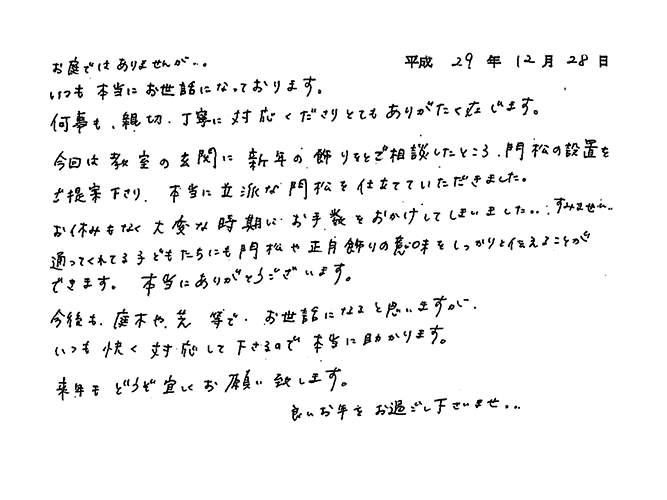 平成 29 年 12 月 28 日
お庭ではありませんが…。
いつも 本当に お世話になっております。
何事も、親切、丁寧に 対応くださりとても ありがたく存じます。
今回は 教室の玄関に 新年の 飾りをとご相談したところ、門松の設置を
ご提案下さり、本当に立派な 門松を 仕立てていただきました。
お休みもなく 大変な時期に、お手数を おかけしてしまいました… すみません…
通ってくれてる子どもたちにも 門松や 正月飾りの意味を しっかりと伝えることが
できます。 本当にありがとうございます。
今後も、庭木や、芝 等で、お世話になると思いますが、
いつも 快く 対応して 下さるので 本当に助かります。
来年も どうぞ 宜しく お願い 致します。
良いお年を お過ごし下さいませ…